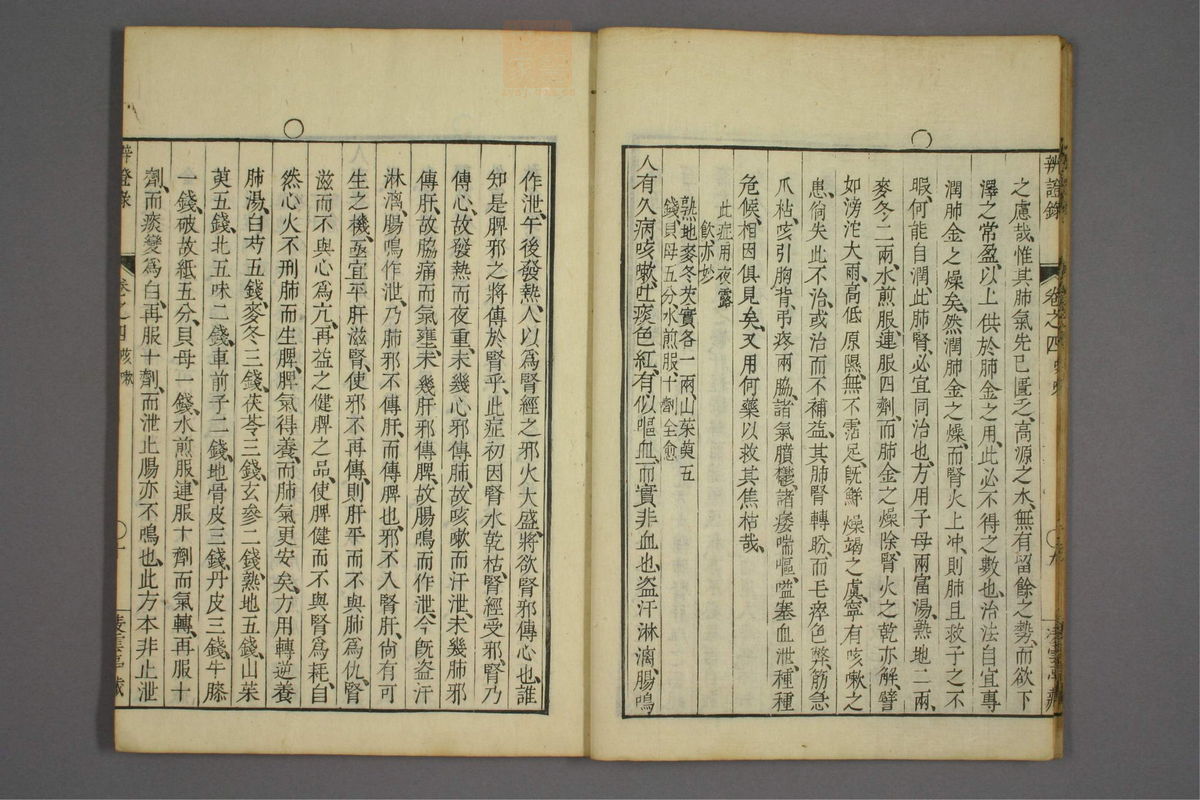 辨證錄
卷之四 咳嗽
之慮哉惟其肺氣先已匱乏、高源之水、無有留餘之勢、而欲下
澤之常盈、以上供於肺金之用、此必不得之數也、治法自宜專
潤肺金之燥矣、然潤肺金之燥、而腎火上冲、則肺且救子之不
暇、何能自潤、此肺腎必宜同治也、方用子母兩富湯、熟地二兩、
麥冬二兩、水煎服、連服四劑、而肺金之燥除、腎火之乾亦解、譬
如滂沱大雨、高低原隰、無不霑足、旣鮮燥竭之虞、寧有咳嗽之
患、倘失此不治、或治而不補益其肺腎、轉盼而毛瘁色弊、筋急
爪枯、咳引胸背、弔疼兩脇、諸氣膹鬱、諸痿喘嘔、嗌塞血泄、種種
危候、相因俱見矣、又用何藥以救其焦枯哉、
此症用夜露
飲亦妙
熟地麥冬芡實各一兩、山茱萸五
錢、貝母五分、水煎服、十劑全愈
人有久病咳嗽、吐痰色紅、有似嘔血、而實非血也、盜汗淋漓、腸鳴
作泄、午後發熱、人以爲腎經之邪火大盛、將欲腎邪傳心也、誰
知是脾邪之將傳於腎乎、此症初因腎水乾枯、腎經受邪、腎乃
傳心、故發熱而夜重、未幾心邪傳肺、故咳嗽而汗泄、未幾肺邪
傳肝、故脇痛而氣壅、未幾肝邪傳脾、故腸鳴而作泄、今旣盜汗
淋漓、腸鳴作泄、乃肺邪不傳肝、而傳脾也、邪不入腎肝、尙有可
生之機、亟宜平肝滋腎、使邪不再傳、則肝平而不與肺爲仇、腎
滋而不與心爲亢、再益之健脾之品、使脾健而不與腎爲耗、自
然心火不刑肺而生脾、脾氣得養而肺氣更安矣、方用轉逆養
肺湯、白芍五錢、麥冬三錢、茯苓三錢、玄參二錢、熟地五錢、山茱
萸五錢、北五味二錢、車前子二錢、地骨皮三錢、丹皮三錢、牛膝
一錢、破故紙五分、貝母一錢、水煎服、連服十劑而氣轉、再服十
劑、而痰變爲白、再服十劑、而泄止腸亦不鳴也、此方本非止泄
辨證錄
卷之四 咳嗽